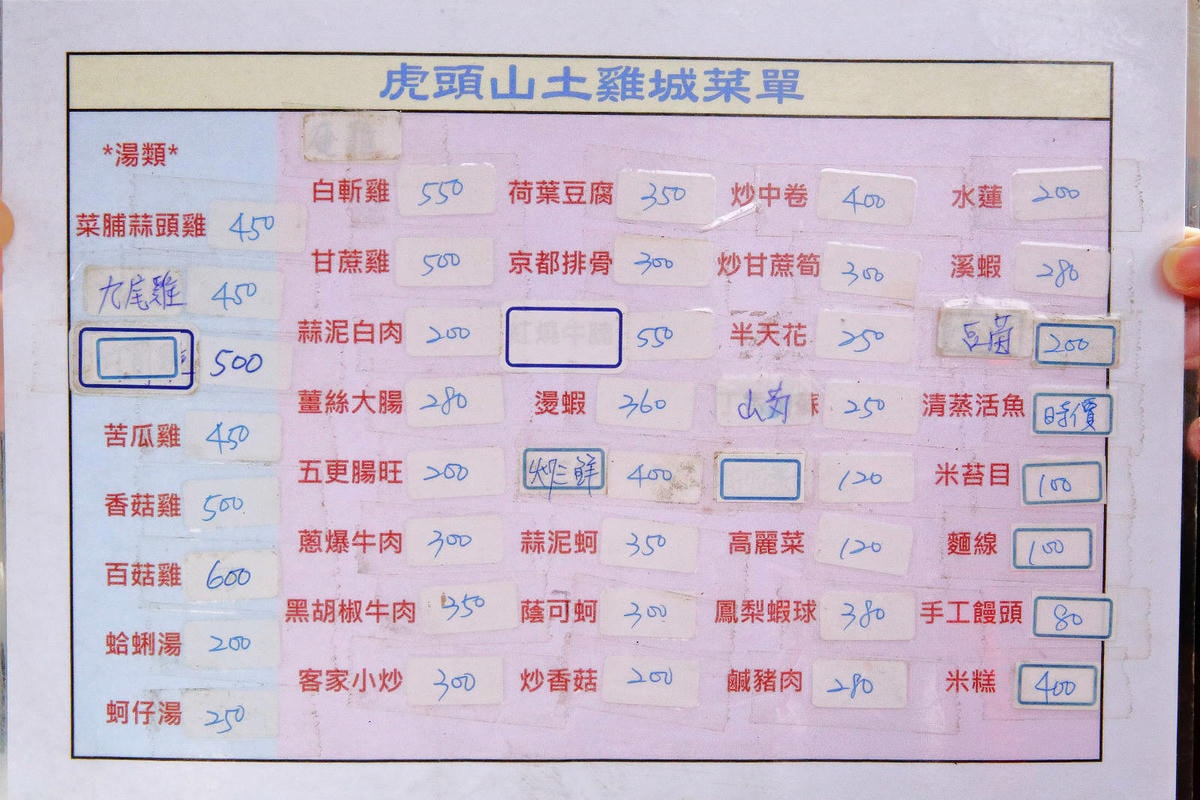 虎頭山土雞城菜單
*湯類*
菜脯蒜頭雞 450
九尾雞 450
500
苦瓜雞 450
香菇雞 500
百菇雞 600
蛤蜊湯 200
蚵仔湯 250
白斬雞 550
甘蔗雞 500
蒜泥白肉 200
薑絲大腸 280
五更腸旺 200
蔥爆牛肉 300
黑胡椒牛肉 350
客家小炒 300
荷葉豆腐 350
京都排骨 300
550
燙蝦 360
炒三鮮 400
蒜泥蚵 350
蔭可蚵 300
炒香菇 200
炒中卷 400
炒甘蔗筍 300
半天花 250
250
120
高麗菜 120
鳳梨蝦球 380
鹹豬肉 280
水蓮 200
溪蝦 280
200
清蒸活魚 時價
米苔目 100
麵線 100
手工饅頭 80
米糕 400